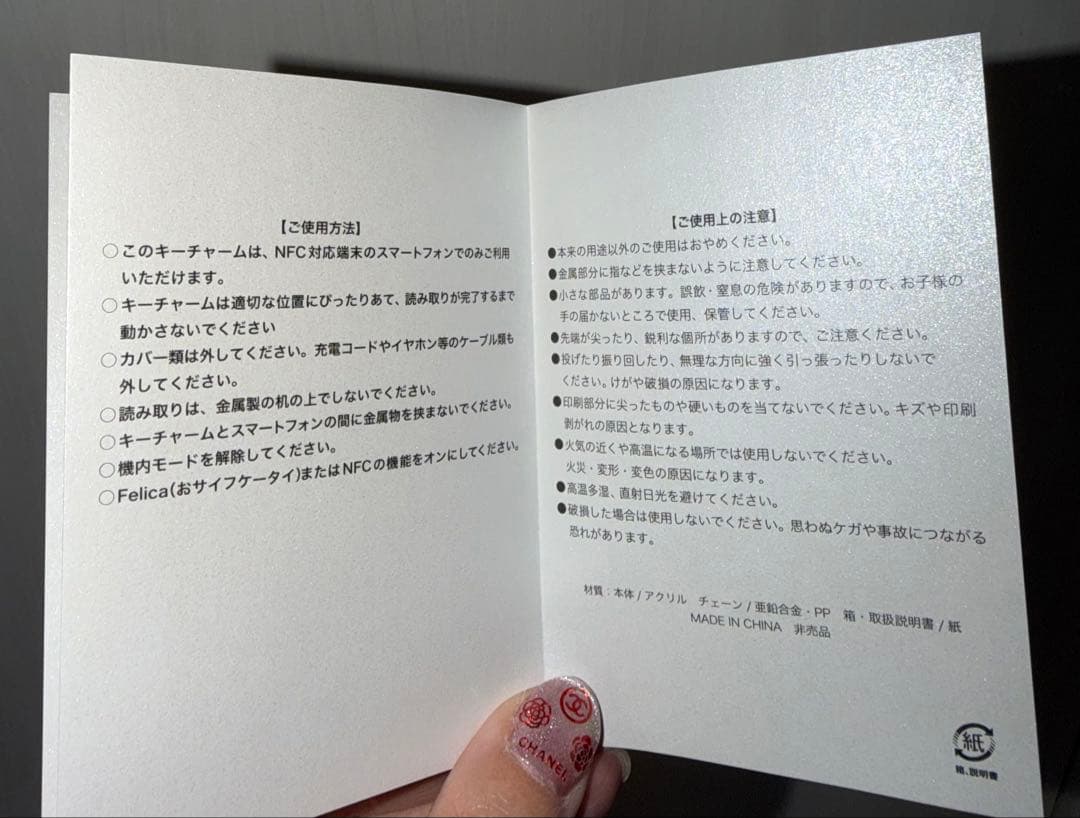 【ご使用方法】
○このキーチャームは、NFC対応端末のスマートフォンでのみご利用
いただけます。
○キーチャームは適切な位置にぴったりあて、読み取りが完了するまで
動かさないでください
○カバー類は外してください。充電コードやイヤホン等のケーブル類も
外してください。
○読み取りは、金属製の机の上でしないでください。
○キーチャームとスマートフォンの間に金属物を挟まないでください。
○機内モードを解除してください。
○Felica(おサイフケータイ)またはNFCの機能をオンにしてください。
【ご使用上の注意】
●本来の用途以外のご使用はおやめください。
●金属部分に指などを挟まないように注意してください。
●小さな部品があります。誤飲・窒息の危険がありますので、お子様の
手の届かないところで使用、保管してください。
●先端が尖ったり、鋭利な個所がありますので、ご注意ください。
●投げたり振り回したり、無理な方向に強く引っ張ったりしないで
ください。けがや破損の原因になります。
●印刷部分に尖ったものや硬いものを当てないでください。キズや印刷
剥がれの原因となります。
●火気の近くや高温になる場所では使用しないでください。
火災・変形・変色の原因になります。
●高温多湿、直射日光を避けてください。
●破損した場合は使用しないでください。思わぬケガや事故につながる
恐れがあります。
材質：本体/アクリル　チェーン/亜鉛合金・PP　箱・取扱説明書/紙
MADE IN CHINA　非売品
紙
箱、説明書
CHANEL